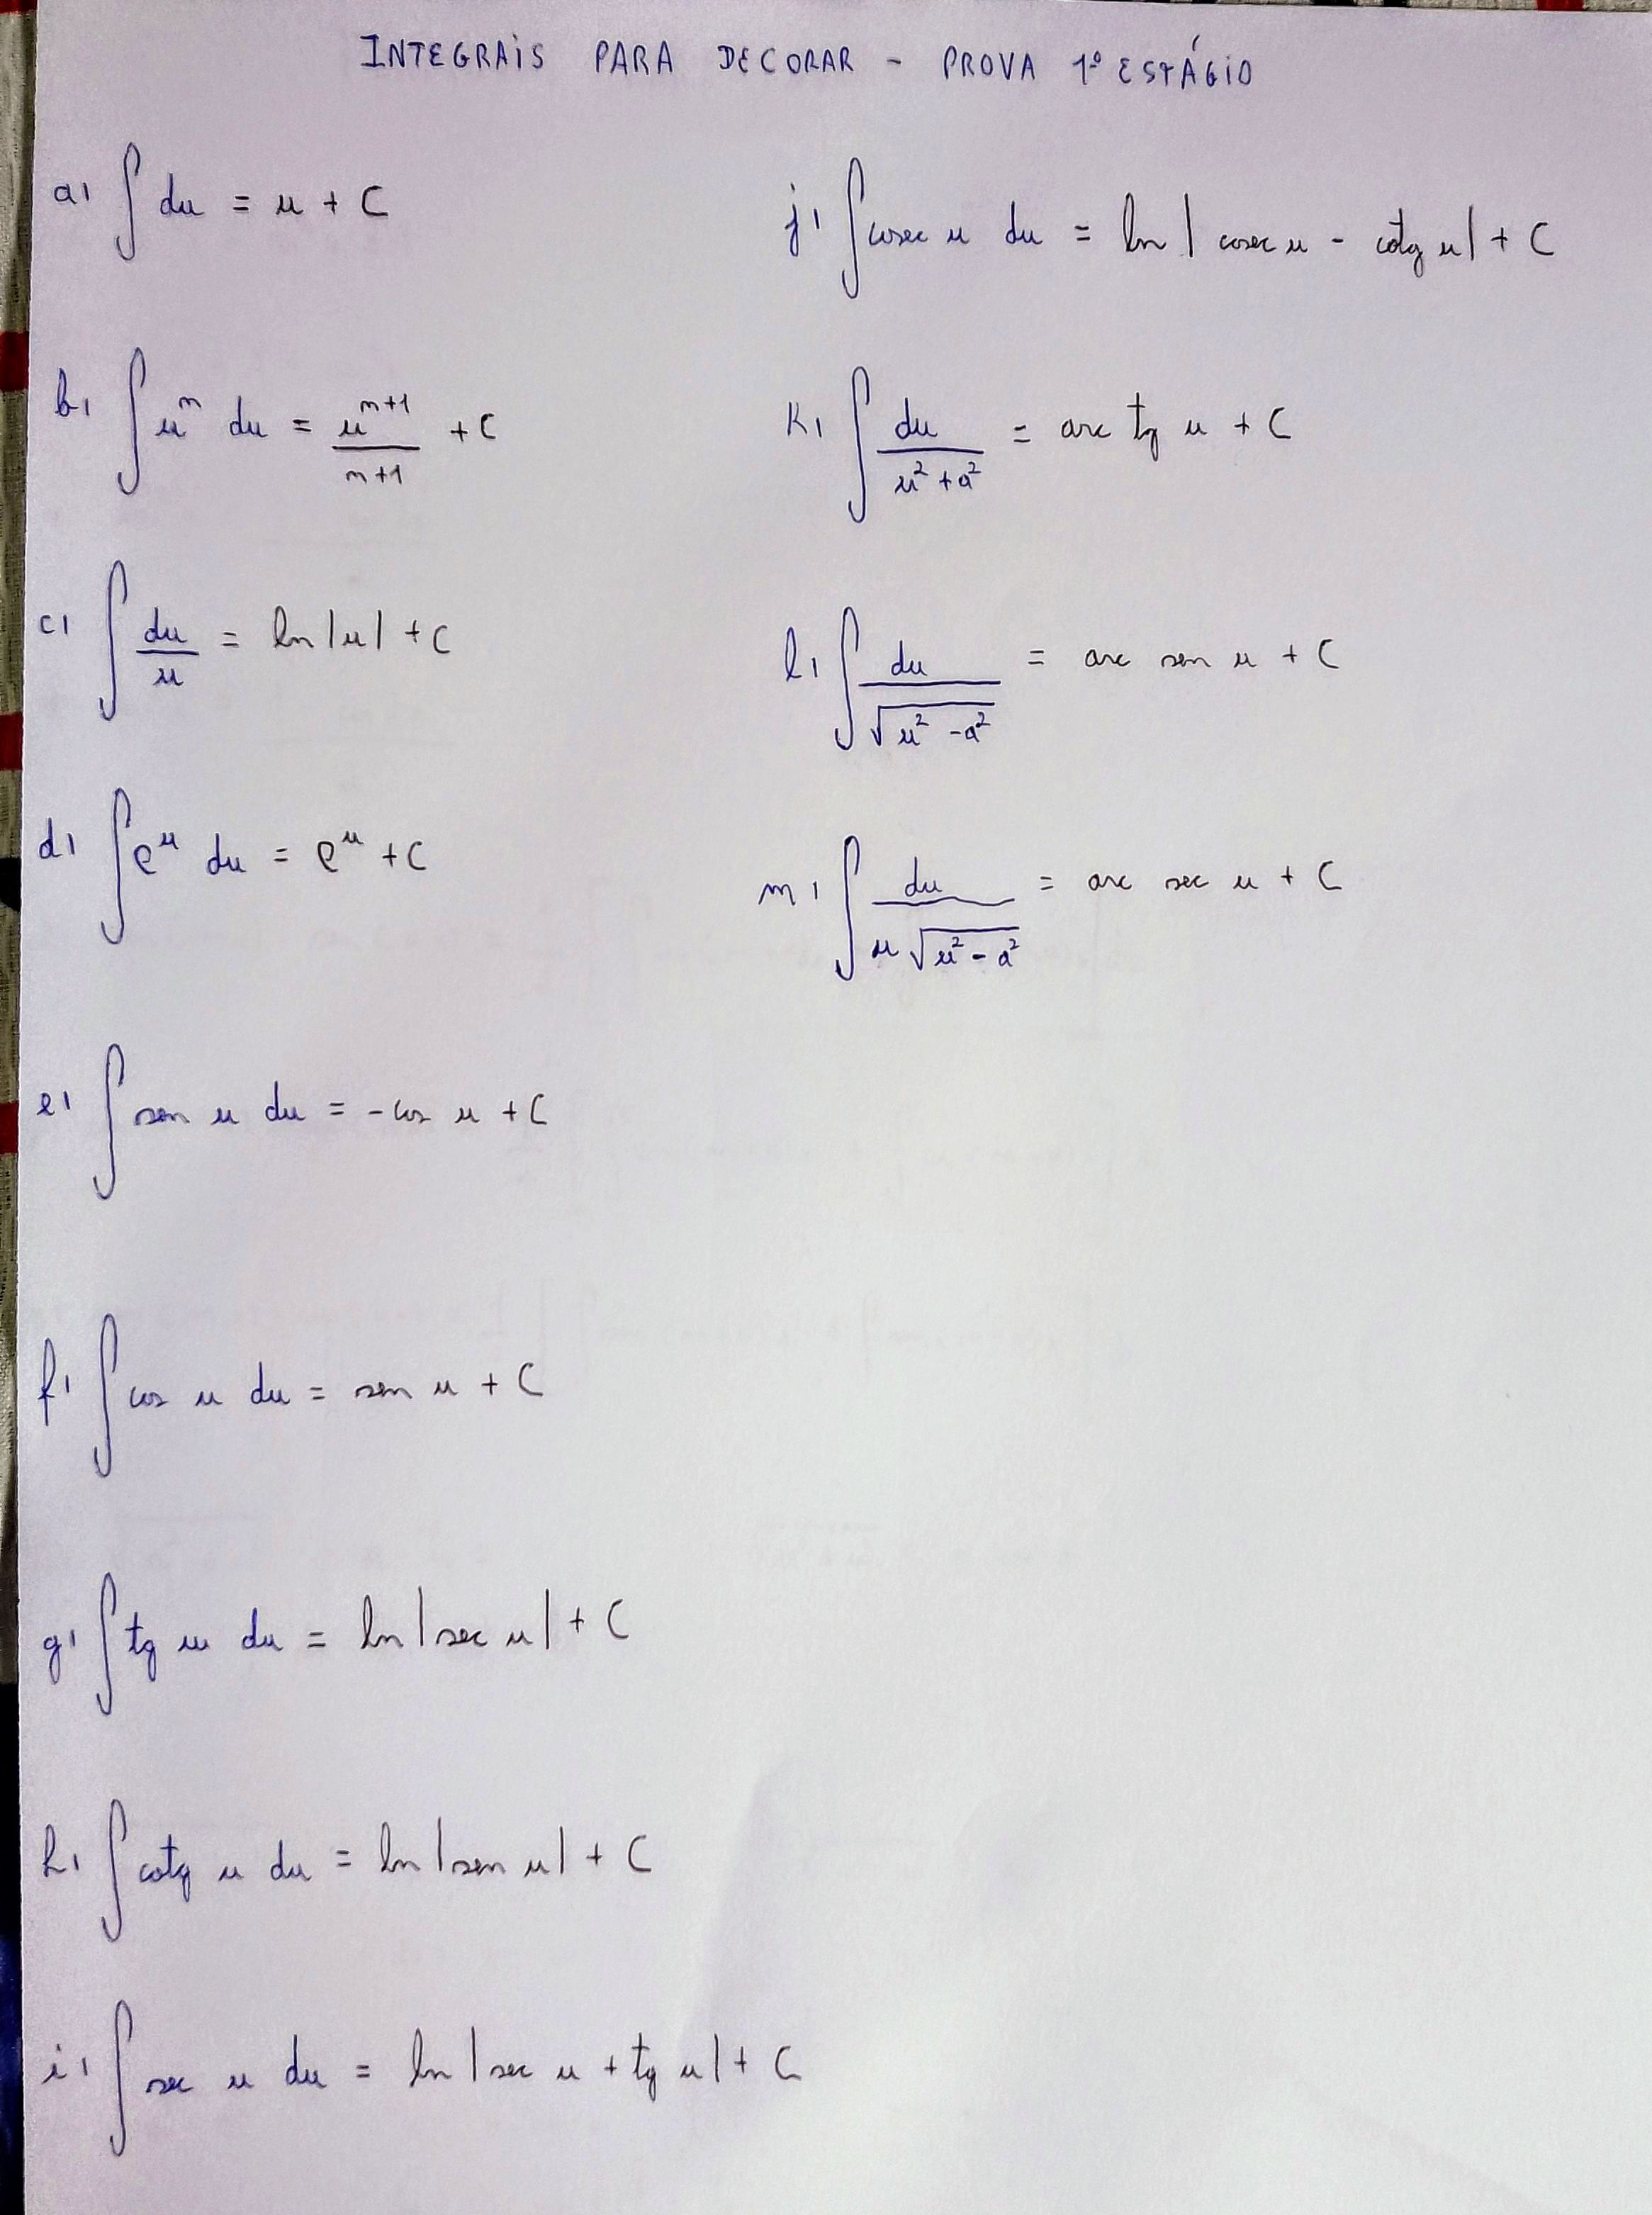 INTEGRAIS PARA DECORAR - PROVA 1º ESTÁGIO
a) ∫ du = u + C
b) ∫ u^n du = u^(n+1)/(n+1) + C
c) ∫ du/u = ln |u| + C
d) ∫ e^u du = e^u + C
e) ∫ sen u du = -cos u + C
f) ∫ cos u du = sen u + C
g) ∫ tg u du = ln |sec u| + C
h) ∫ cotg u du = ln |sen u| + C
i) ∫ sec u du = ln |sec u + tg u| + C
j) ∫ cosec u du = ln | cosec u - cotg u| + C
K) ∫ du/(u² + a²) = arc tg u + C
l) ∫ du/√(u² - a²) = arc sen u + C
m) ∫ du/(u √(u² - a²)) = arc sec u + C